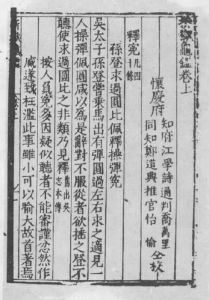 折獄龜鑑卷上
懷慶府
知府江學詩通判喬萬里
同知鄭道興推官怡愉
仝校
釋冤
孫登求過圓比佩釋操彈冤
吳太子孫登嘗乘馬出有彈圓過左右求之適見一
人操彈佩圓咸以為是辭對不服從者欲捶之登不
聽使求過圓比之非類乃見釋舊出吳志本傳
按人負冤多因疑似聽者不能審謹忿然作
威遂致枉濫此事雖小可以喻大故首著焉